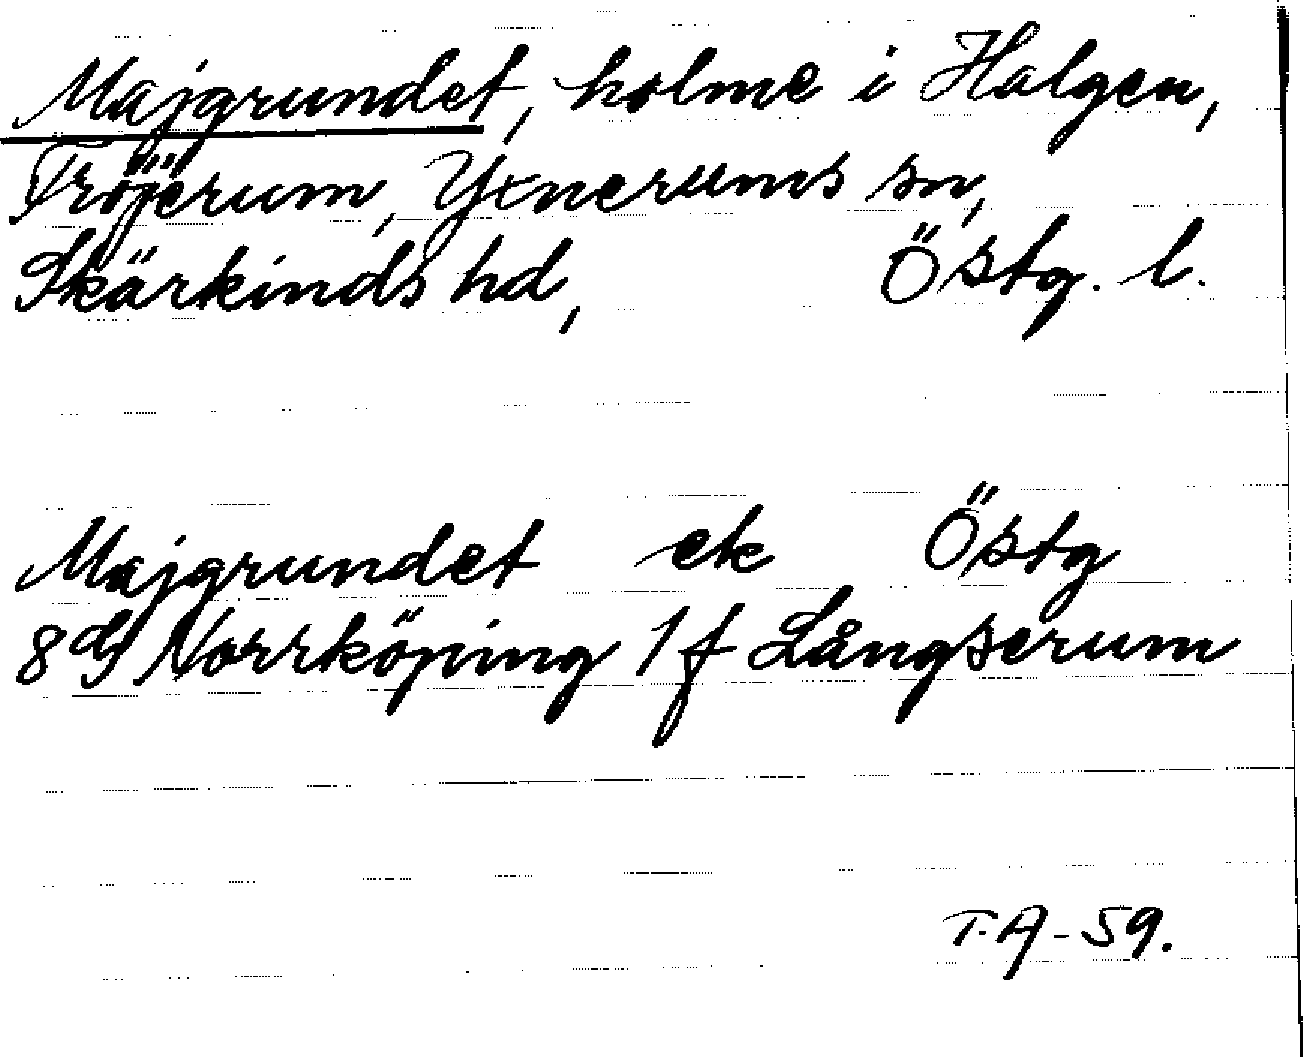 Majgrundet, holme i Halgen,
Fröjerum, Yxnerums sn,
Skärkinds hd, Östg. l.
Majgrundet ek Östg
8d Norrköping 1 f Långserum
T.A-59.